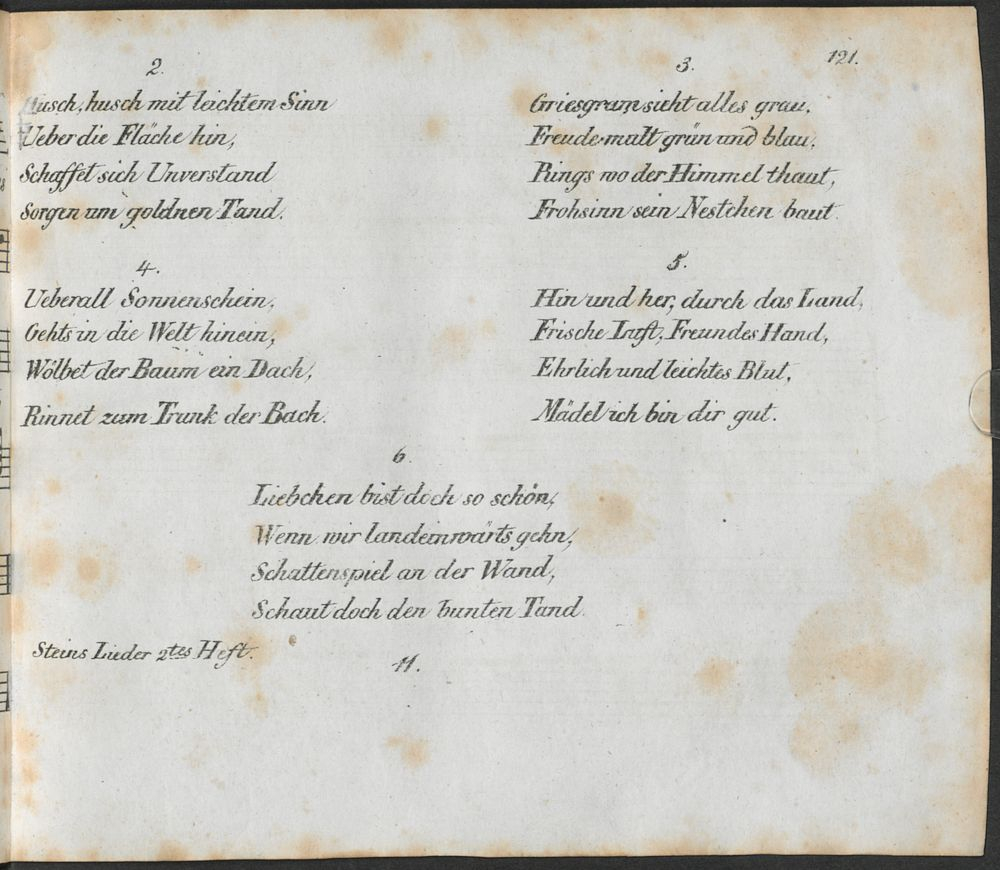 121.
2.
Husch, husch mit leichtem Sinn
Ueber die Fläche hin,
Schaffet sich Unverstand
Sorgen um goldnen Tand.
3.
Griesgram sieht alles grau,
Freude malt grün und blau,
Rings wo der Himmel thaut,
Frohsinn sein Nestchen baut.
4.
Ueberall Sonnenschein,
Gehts in die Welt hinein,
Wölbet der Baum ein Dach,
Rinnet zum Trunk der Bach.
5.
Hin und her, durch das Land,
Frische Luft, Freundes Hand,
Ehrlich und leichtes Blut,
Mädel ich bin dir gut.
6.
Liebchen bist doch so schön,
Wenn wir landeinwärts gehn,
Schattenspiel an der Wand,
Schaut doch den bunten Tand.
Steins Lieder 2tes Heft.
11.